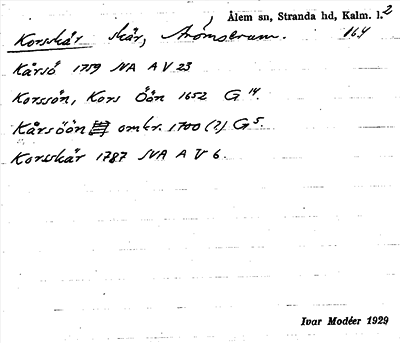 Ålem sn, Stranda hd, Kalm. l. 2
Korsskär skär, Strömsrum. 164
Kårsö 1759 SVA A V 23
Korssön, Kors Öön 1652 G 14.
Kårsöön omkr. 1700 (?) G 5.
Korsskär 1787 SVA A V 6.
Ivar Modéer 1929